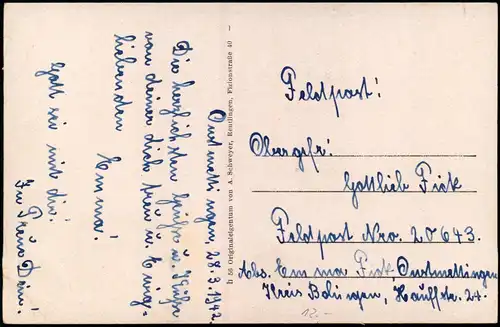 Onstmettingen, 28.3.1942.
Die herzlichsten Grüße u. Küße
von deiner dich treu u. innig-
liebenden
Emma!
Gott sei mit dir!
In Treue Dein!
b 56 Originaleigentum von A. Schwoyer, Reutlingen, Fizionstraße 40
Feldpost!
Obergefr:
Gottlieb Fick
Feldpost Nro. 20643.
Abs. Emma Fick, Onstmettingen
Kreis Balingen, Hauffstr. 24.
12.-